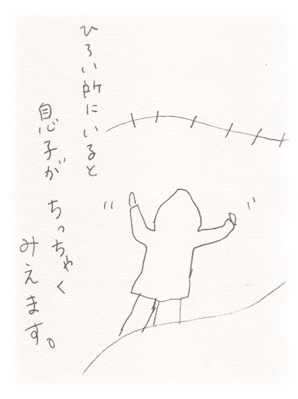 ひろい所にいると
息子が
ちっちゃく
みえます。